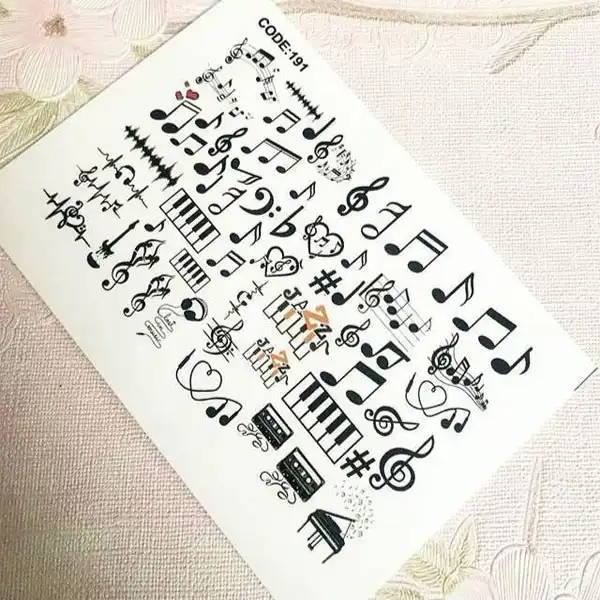 CODE:191
JAZZ
JAZZ